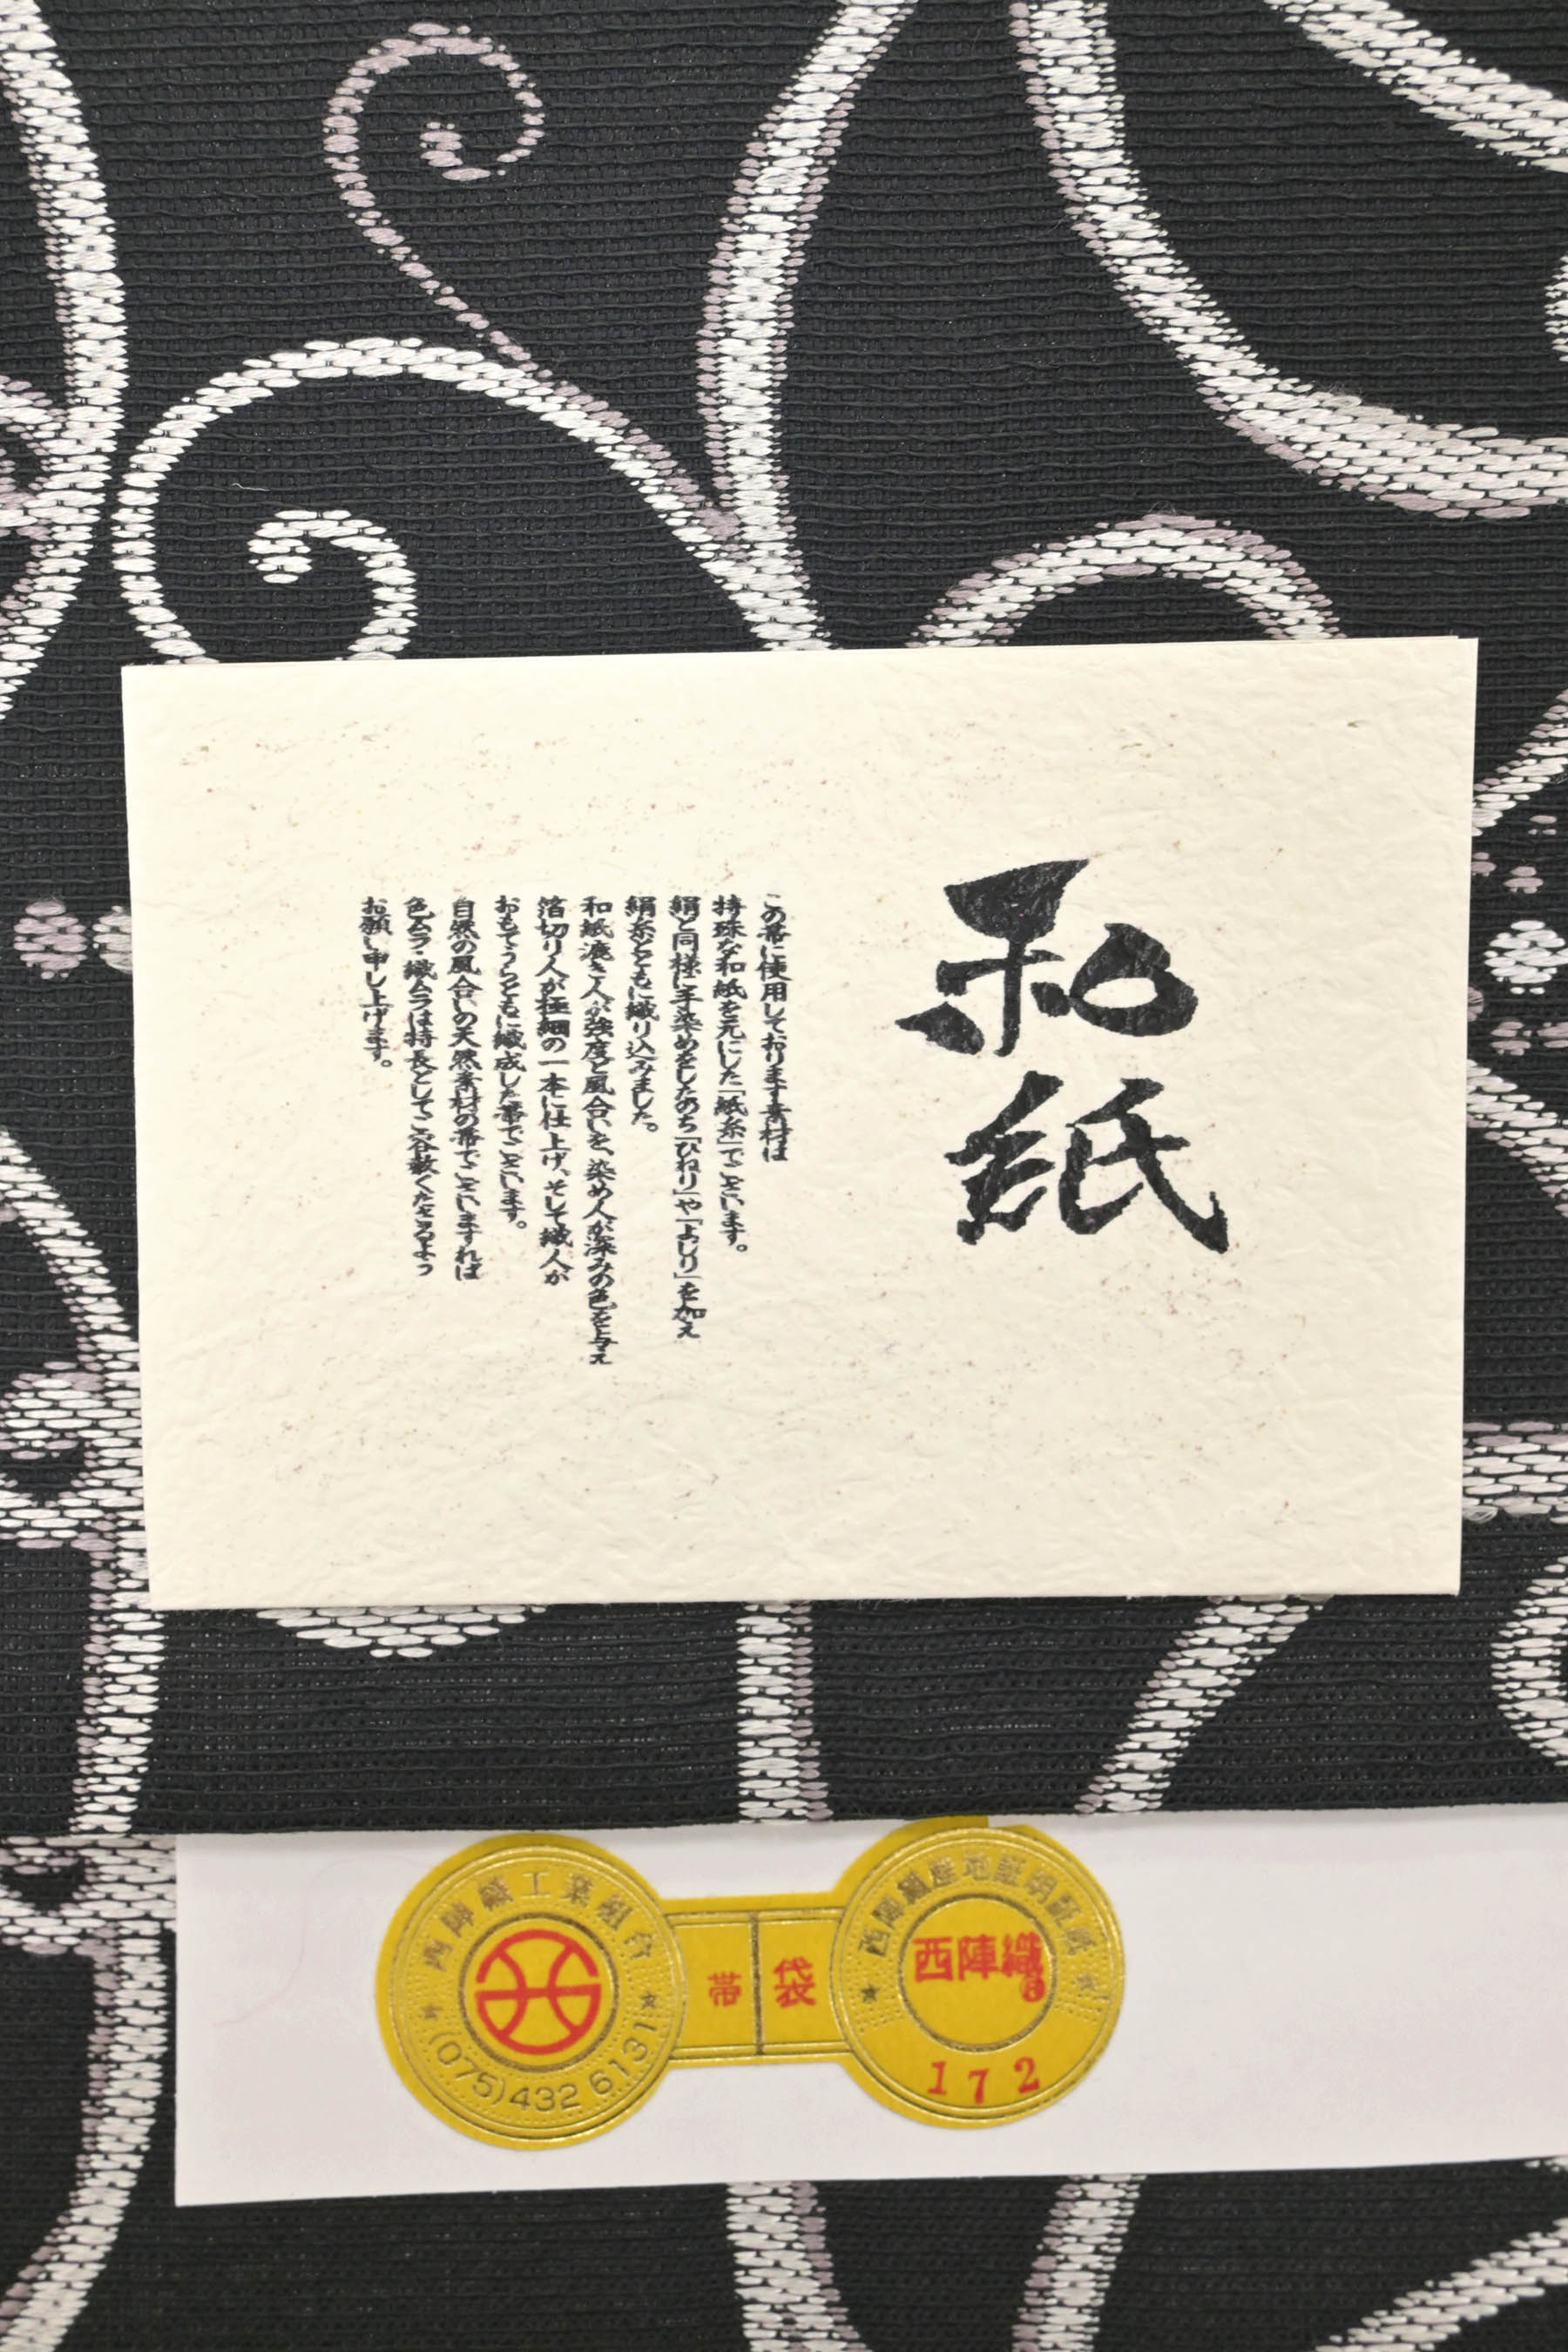 和紙
この帯に使用しております素材は
特殊な和紙を元にした「紙糸」でございます。
絹と同様に手染めをしたのち「ひねり」や「よじり」を加え
絹糸とともに織り込みました。
和紙漉き人が強度と風合いを、染め人が深みの色を与え
箔切り人が極細の一本に仕上げ、そして織人が
おもてうらともに織成した帯でございます。
自然の風合いの天然素材の帯でございますれば
色ムラ・織ムラは特長としてご容赦くださるよう
お願い申し上げます。
西陣織工業組合
(075)432 6131
帯
袋
西陣織産地証明証紙
西陣織
172